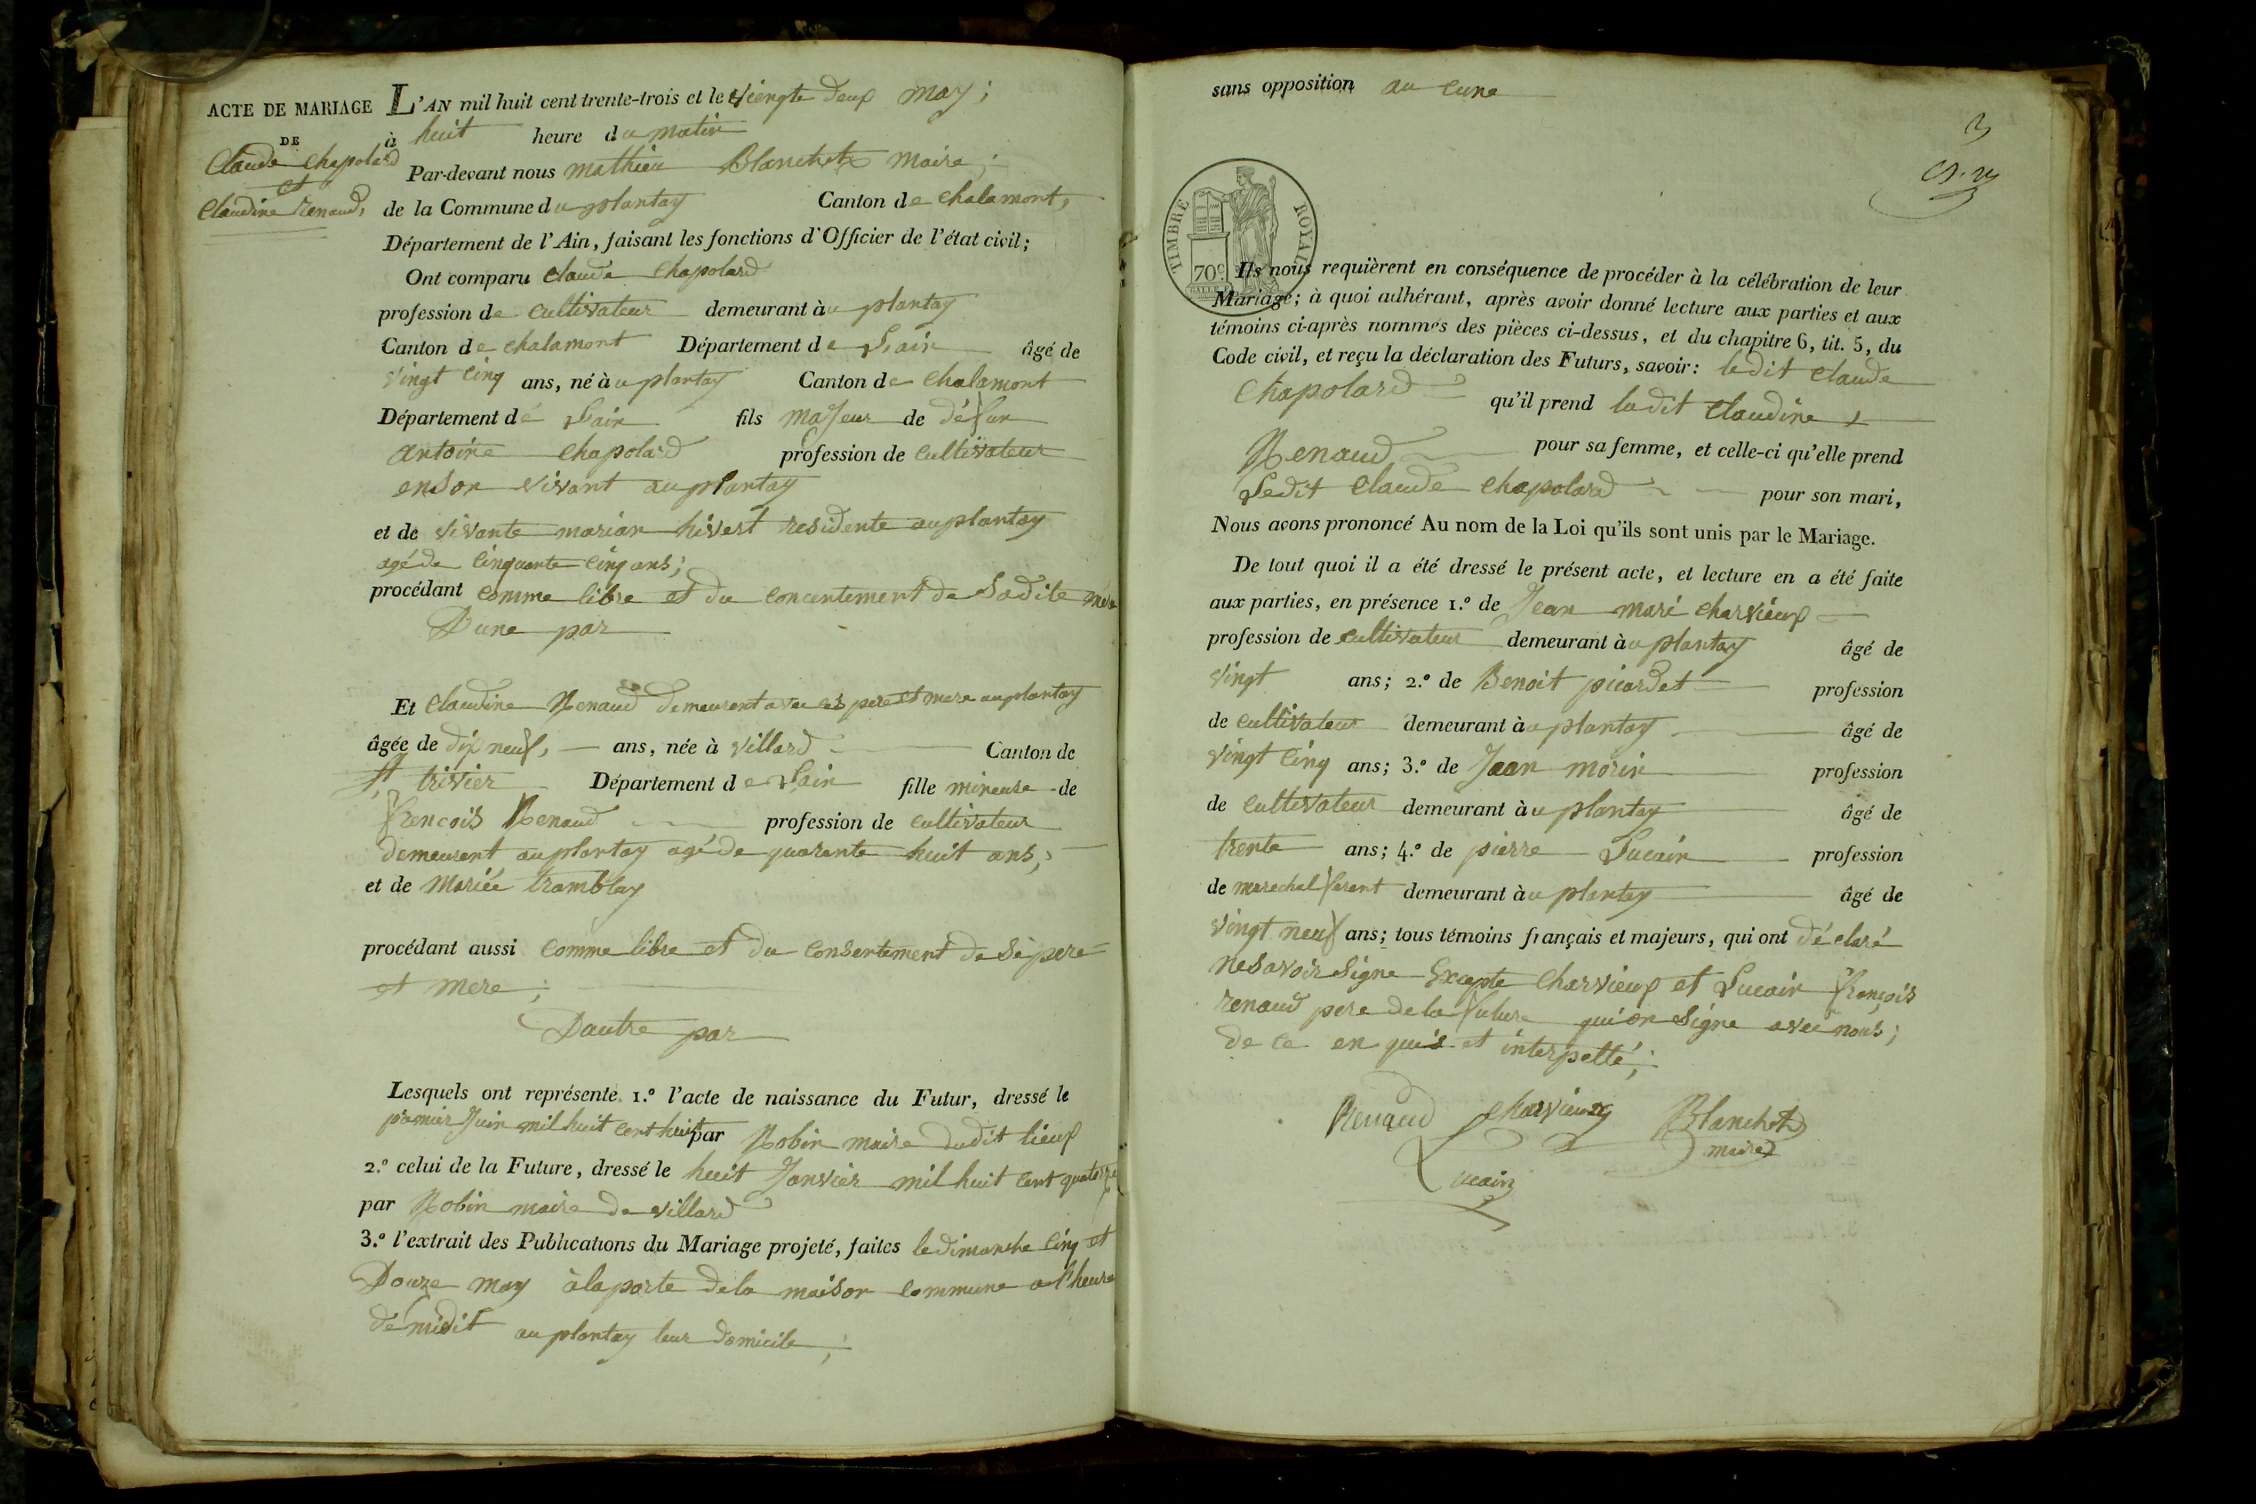 ACTE DE MARIAGE
DE
Claude Chapolard
et
Claudine Renaud,
L'AN mil huit cent trente-trois et le viengte deux may;
à huit heure du matin
Par-devant nous mathieu Blanchet maire;
de la Commune du plantay Canton de chalamont,
Département de l'Ain, faisant les fonctions d'Officier de l'état civil;
Ont comparu claude chapolard
profession de cultivateur demeurant àu plantay
Canton de chalamont Département de Lain âgé de
vingt cinq ans, né àu plantay Canton de chalamont
Département de Lain fils majeur de défun
antoine chapolard profession de cultivateur
enson vivant au plantay
et de vivante marian hivert residente au plantay
agé de cinquante cinq ans;
procédant comme libre et du concentement de sadite mère
Dune par
Et Claudine Renaud demeurent avec ces pere et mere au plantay
âgée de dix neuf, ans, née à villard Canton de
St trivier Département de Lain fille mineure de
francois Renaud profession de cultivateur
demeurent au plantay agé de quarante huit ans,
et de mariée tramblay
procédant aussi comme libre et du consentement de sè pere
et mere;
Dautre par
Lesquels ont représenté 1.º l'acte de naissance du Futur, dressé le
premier Juin mil huit cent huit par Robin maire dudit lieux
2.º celui de la Future, dressé le huit Janvier mil huit cent quatorze
par Robin maire de villard
3.º l'extrait des Publications du Mariage projeté, faites le dimanche cinq et
Douze may à la porte de la maison commune a l'heure
de midit au plantay leur domicile;
sans opposition au cune
3
TIMBRE ROYAL
70c.
Ils nous requièrent en conséquence de procéder à la célébration de leur
Mariage; à quoi adhérant, après avoir donné lecture aux parties et aux
témoins ci-après nommés des pièces ci-dessus, et du chapitre 6, tit. 5, du
Code civil, et reçu la déclaration des Futurs, savoir: ledit claude
Chapolard qu'il prend ladit Claudine
Renaud pour sa femme, et celle-ci qu'elle prend
Ledit Claude chapolard pour son mari,
Nous avons prononcé Au nom de la Loi qu'ils sont unis par le Mariage.
De tout quoi il a été dressé le présent acte, et lecture en a été faite
aux parties, en présence 1.º de Jean mari charvieux
profession de cultivateur demeurant àu plantay âgé de
vingt ans; 2.º de Benoit picardet profession
de cultivateur demeurant àu plantay âgé de
vingt cinq ans; 3.º de Jean morin profession
de cultivateur demeurant àu plantay âgé de
trente ans; 4.º de pierre Lucain profession
de marechal ferent demeurant àu plantay âgé de
vingt neuf ans; tous témoins français et majeurs, qui ont déclaré
ne savoir signe Excepte charvieux et Lucain francois
renaud pere de la future qui on signe avec nous;
de ce en quis et interpellé;
Renaud Charvieux Blanchet
maire
Lucain